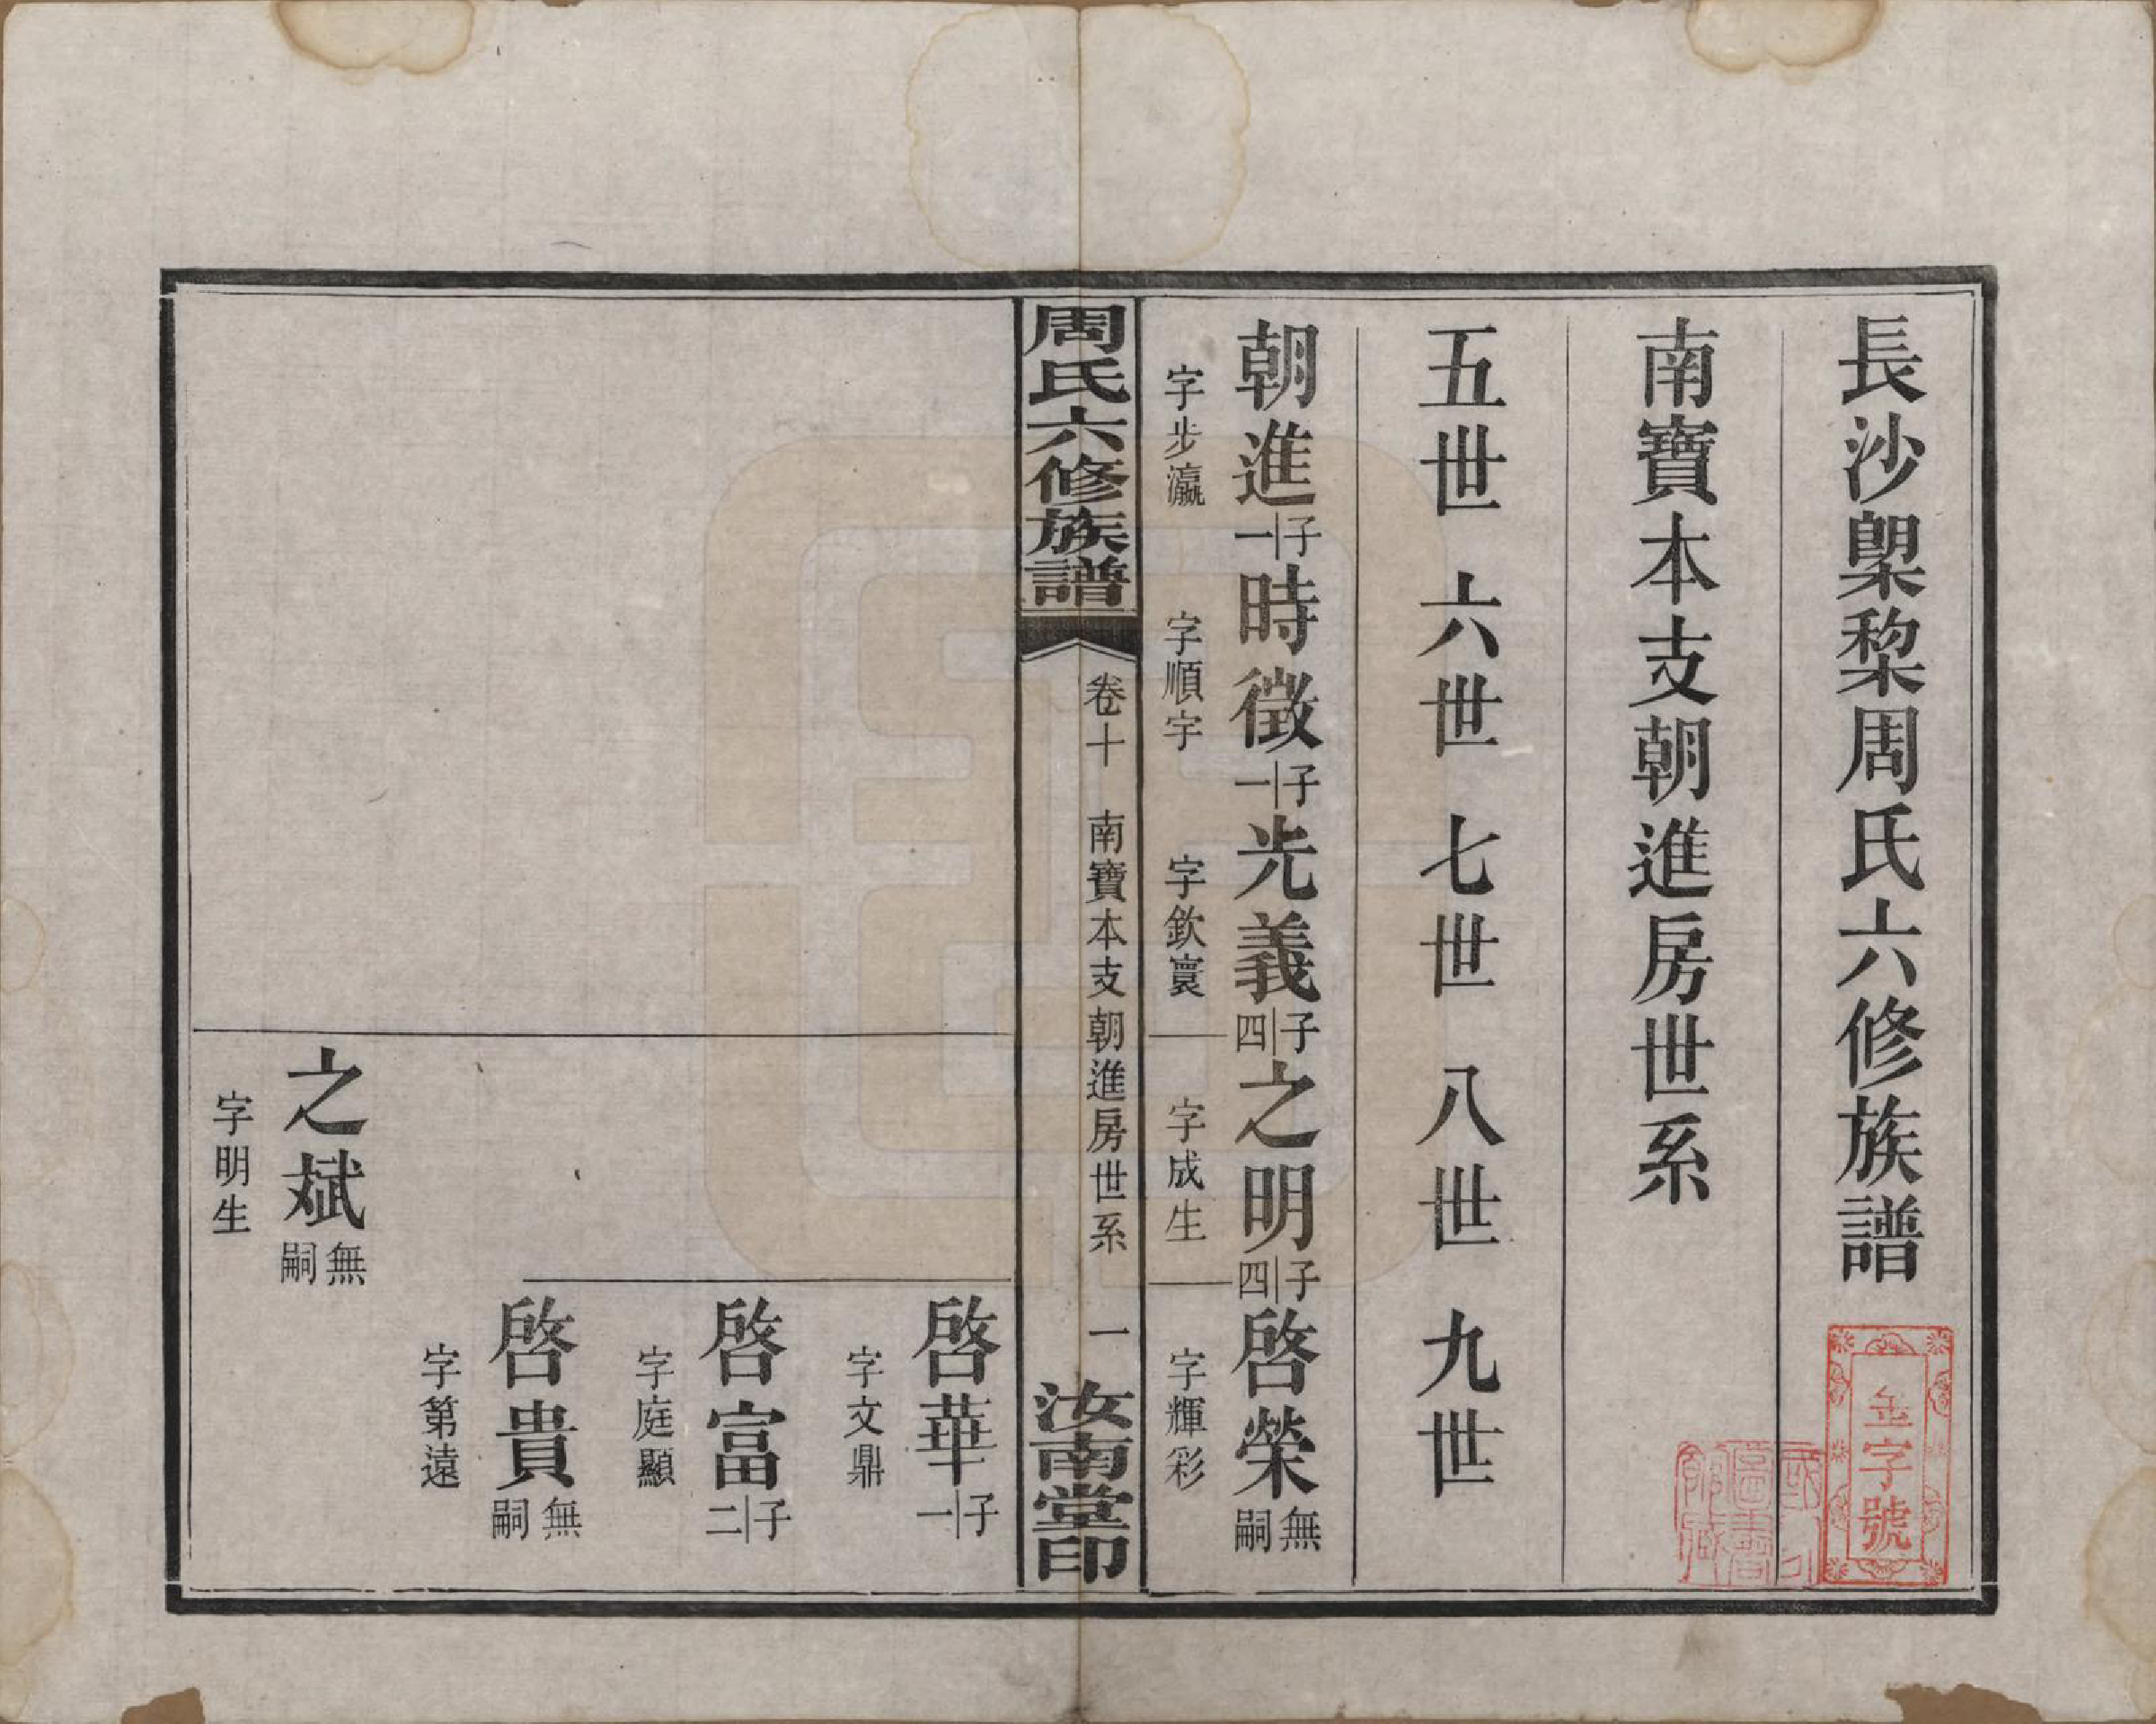 長沙㮚棃周氏六修族譜
金字號
南寶本支朝進房世系
五世 六世 七世 八世 九世
朝進 子一 時徵 子一 光義 子四 之明 子四 啓榮 無嗣
字步瀛 字順字 字欽寰 字成生 字輝彩
周氏六修族譜 卷十 南寶本支朝進房世系 一 汝南堂印
啓華 子一
字文鼎
啓富 子二
字庭顯
啓貴 無嗣
字第遠
之斌 無嗣
字明生